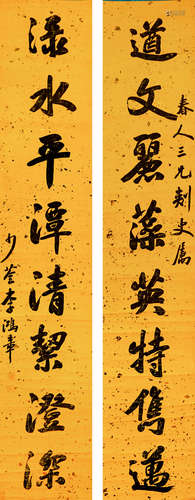 春人三兄刺史屬
遒文麗藻英特儁邁
渌水平潭清絜澄深
少荃李鴻章